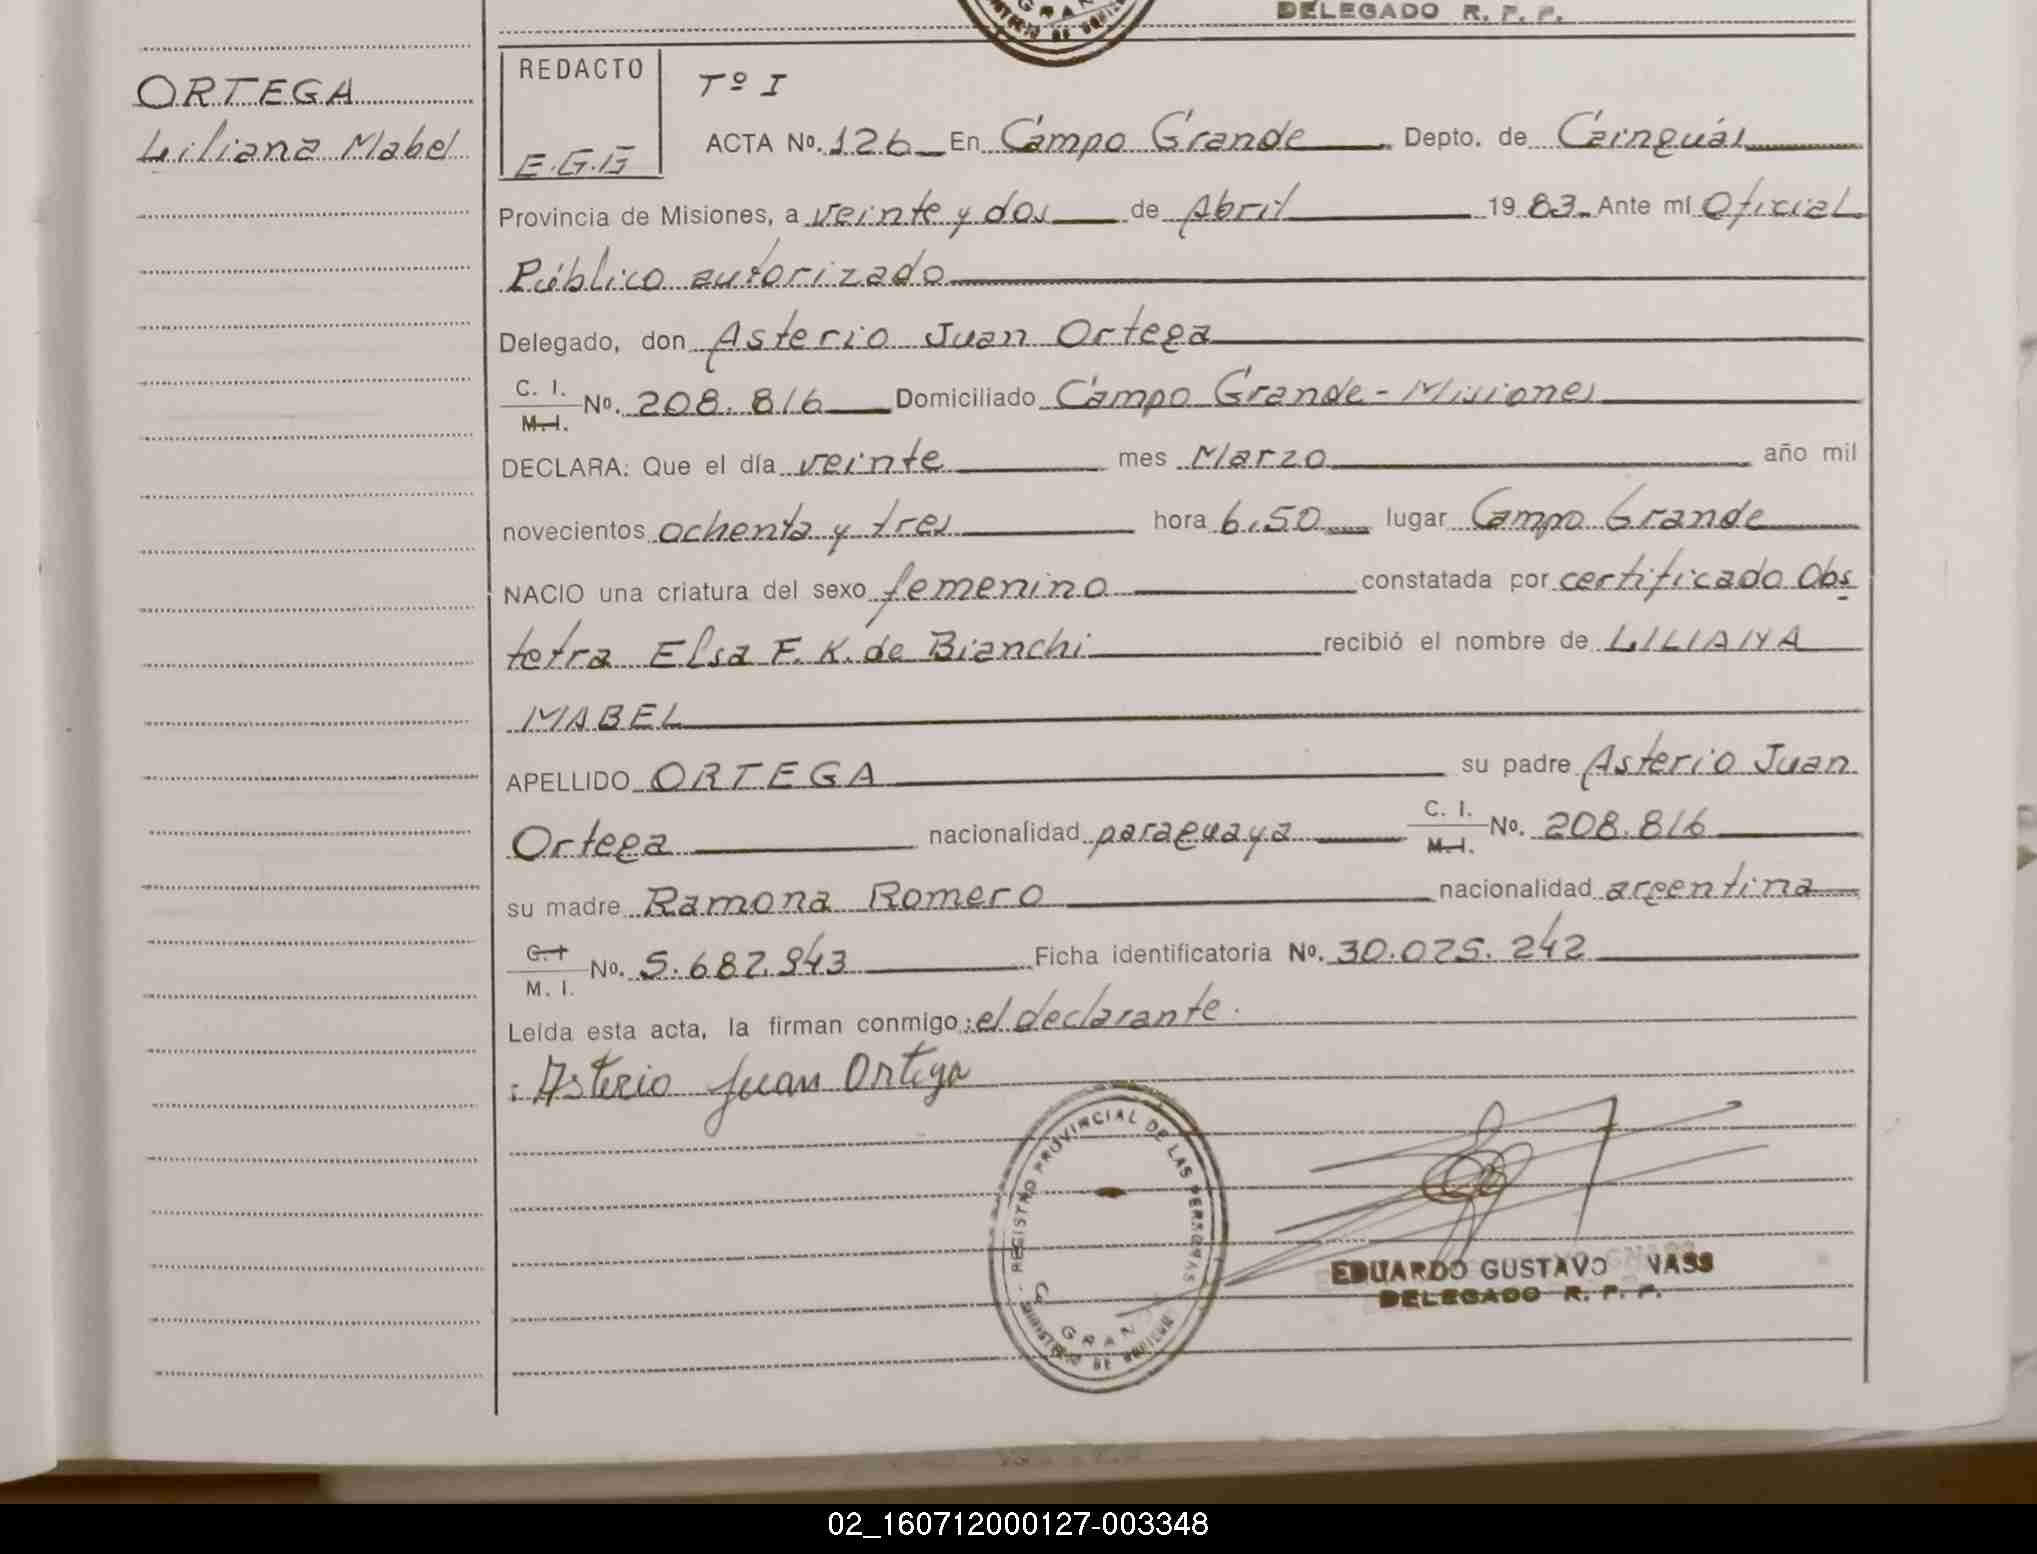 GRAN
MINISTERIO DE GOBIERNO
DELEGADO R. P. P.
ORTEGA
Liliana Mabel
REDACTO
E.G.B
Tº I
ACTA Nº. 126 En Campo Grande Depto. de Cainguás
Provincia de Misiones, a veinte y dos de Abril 1983. Ante mí Oficial
Público autorizado
Delegado, don Asterio Juan Ortega
C. I.
M. I. Nº. 208.816 Domiciliado Campo Grande - Misiones
DECLARA: Que el día veinte mes Marzo año mil
novecientos ochenta y tres hora 6.50 lugar Campo Grande
NACIO una criatura del sexo femenino constatada por certificado Obs
tetra Elsa F. K. de Bianchi recibió el nombre de LILIANA
MABEL
APELLIDO ORTEGA su padre Asterio Juan
Ortega nacionalidad paraguaya C. I.
M. I. Nº. 208.816
su madre Ramona Romero nacionalidad argentina
C. I.
M. I. Nº. 5.682.943 Ficha identificatoria Nº. 30.025.242
Leída esta acta, la firman conmigo: el declarante.
: Asterio Juan Ortega
REGISTRO PROVINCIAL DE LAS PERSONAS
GRAN
MINISTERIO DE GOBIERNO
EDUARDO GUSTAVO VASS
DELEGADO R. P. P.
02_160712000127-003348